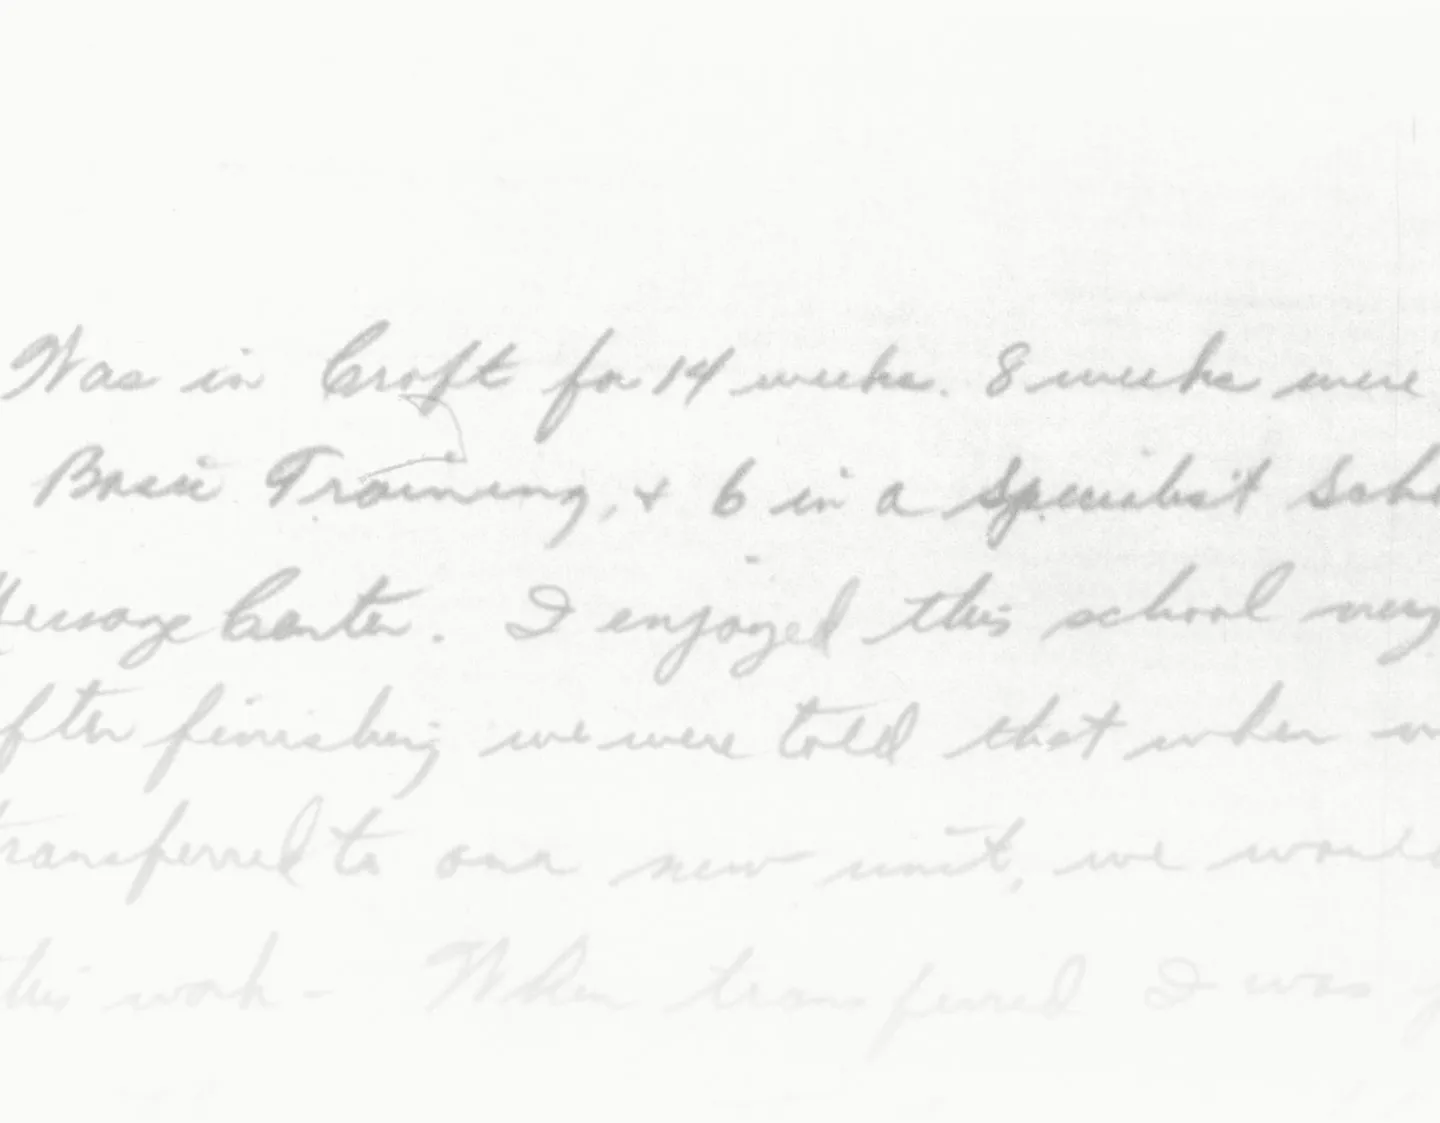 Was in Croft for 14 weeks. 8 weeks were
Basic Training, & 6 in a Specialist Scho
Message Center. I enjoyed this school very
fter finishing we were told that when w
transferred to our new unit, we would
this work - When transferred I was